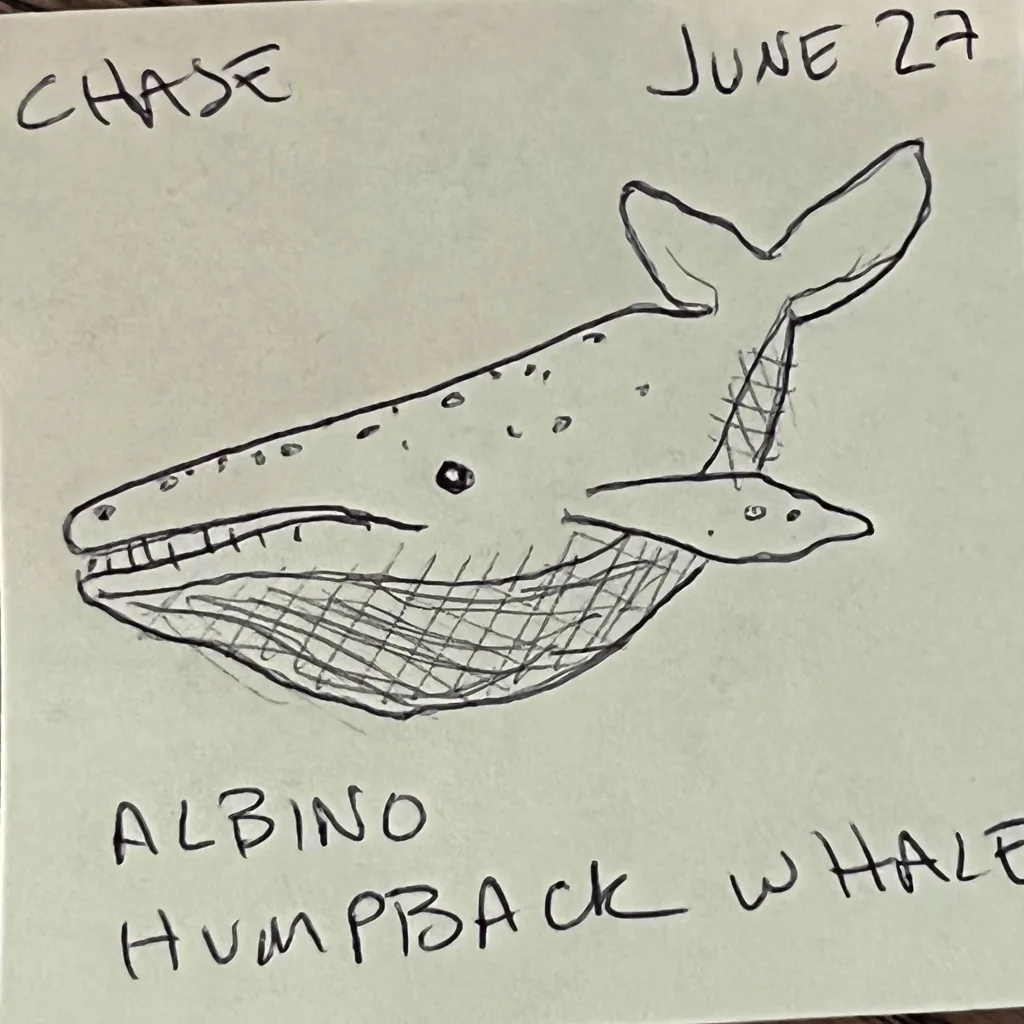 CHASE JUNE 27
ALBINO
HUMPBACK WHALE